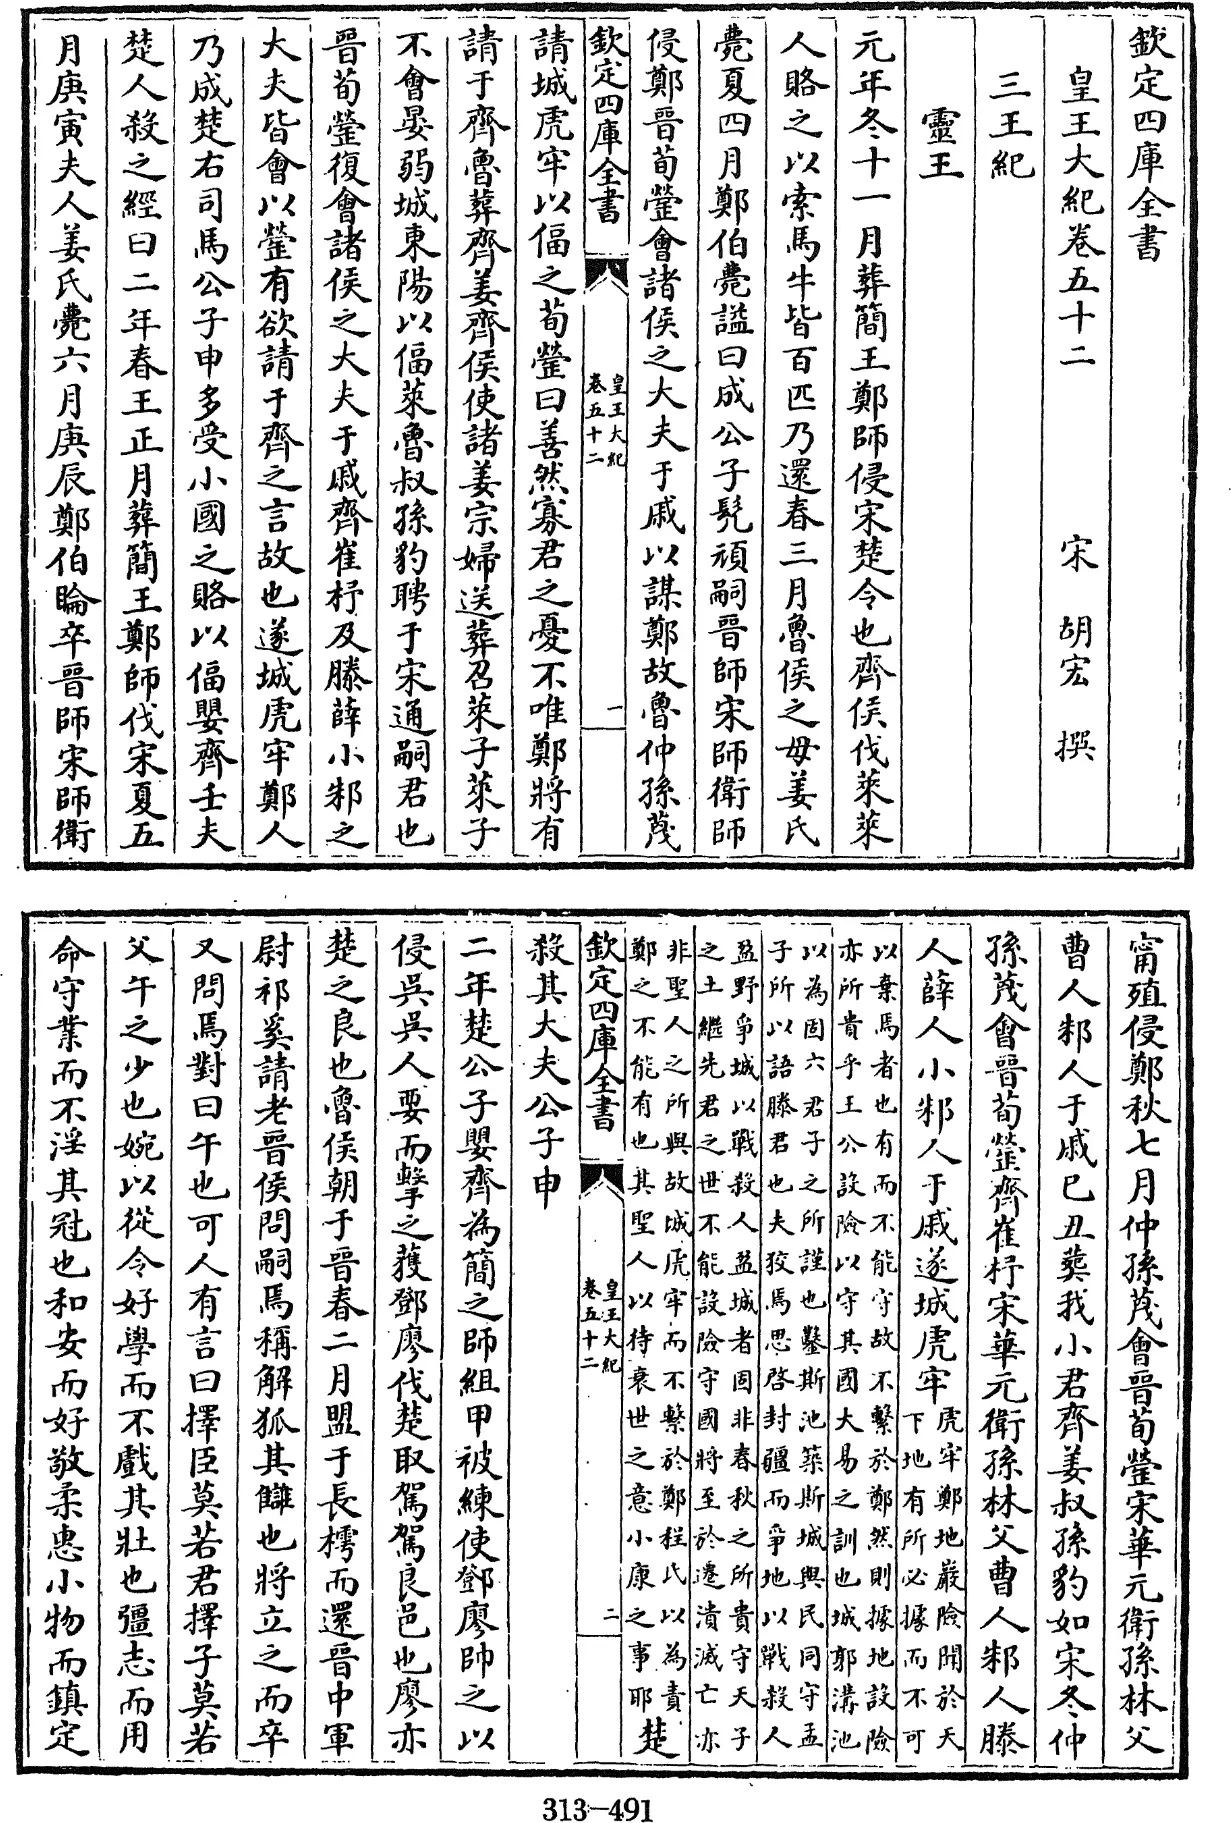 欽定四庫全書
皇王大紀卷五十二
宋 胡宏 撰
三王紀
靈王
元年冬十一月葬簡王鄭師侵宋楚令也齊侯伐萊萊
人賂之以索馬牛皆百匹乃還春三月魯侯之母姜氏
薨夏四月鄭伯薨諡曰成公子髠頑嗣晉師宋師衛師
侵鄭晉荀罃會諸侯之大夫于戚以謀鄭故魯仲孫蔑
欽定四庫全書
皇王大紀
卷五十二
一
請城虎牢以偪之荀罃曰善然寡君之憂不唯鄭將有
請于齊魯葬齊姜齊侯使諸姜宗婦送葬召萊子萊子
不會晏弱城東陽以偪萊魯叔孫豹聘于宋通嗣君也
晉荀罃復會諸侯之大夫于戚齊崔杼及滕薛小邾之
大夫皆會以罃有欲請于齊之言故也遂城虎牢鄭人
乃成楚右司馬公子申多受小國之賂以偪嬰齊壬夫
楚人殺之經曰二年春王正月葬簡王鄭師伐宋夏五
月庚寅夫人姜氏薨六月庚辰鄭伯睔卒晉師宋師衛
甯殖侵鄭秋七月仲孫蔑會晉荀罃宋華元衛孫林父
曹人邾人于戚己丑葬我小君齊姜叔孫豹如宋冬仲
孫蔑會晉荀罃齊崔杼宋華元衛孫林父曹人邾人滕
人薛人小邾人于戚遂城虎牢
虎牢鄭地嚴險聞於天
下地有所必據而不可
以棄焉者也有而不能守故不繫於鄭然則據地設險
亦所貴乎王公設險以守其國大易之訓也城郭溝池
以為固六君子之所謹也鑿斯池築斯城與民同守孟
子所以語滕君也夫狡焉思啓封疆而爭地以戰殺人
盈野爭城以戰殺人盈城者固非春秋之所貴守天子
之土繼先君之世不能設險守國將至於遷潰滅亡亦
非聖人之所與故城虎牢而不繫於鄭程氏以為責
鄭之不能有也其聖人以待衰世之意小康之事耶
楚
欽定四庫全書
皇王大紀
卷五十二
二
殺其大夫公子申
二年楚公子嬰齊為簡之師組甲被練使鄧廖帥之以
侵吳吳人要而擊之獲鄧廖伐楚取駕駕良邑也廖亦
楚之良也魯侯朝于晉春二月盟于長樗而還晉中軍
尉祁奚請老晉侯問嗣焉稱解狐其讎也將立之而卒
又問焉對曰午也可人有言曰擇臣莫若君擇子莫若
父午之少也婉以從令好學而不戲其壯也彊志而用
命守業而不淫其冠也和安而好敬柔惠小物而鎮定
313-491